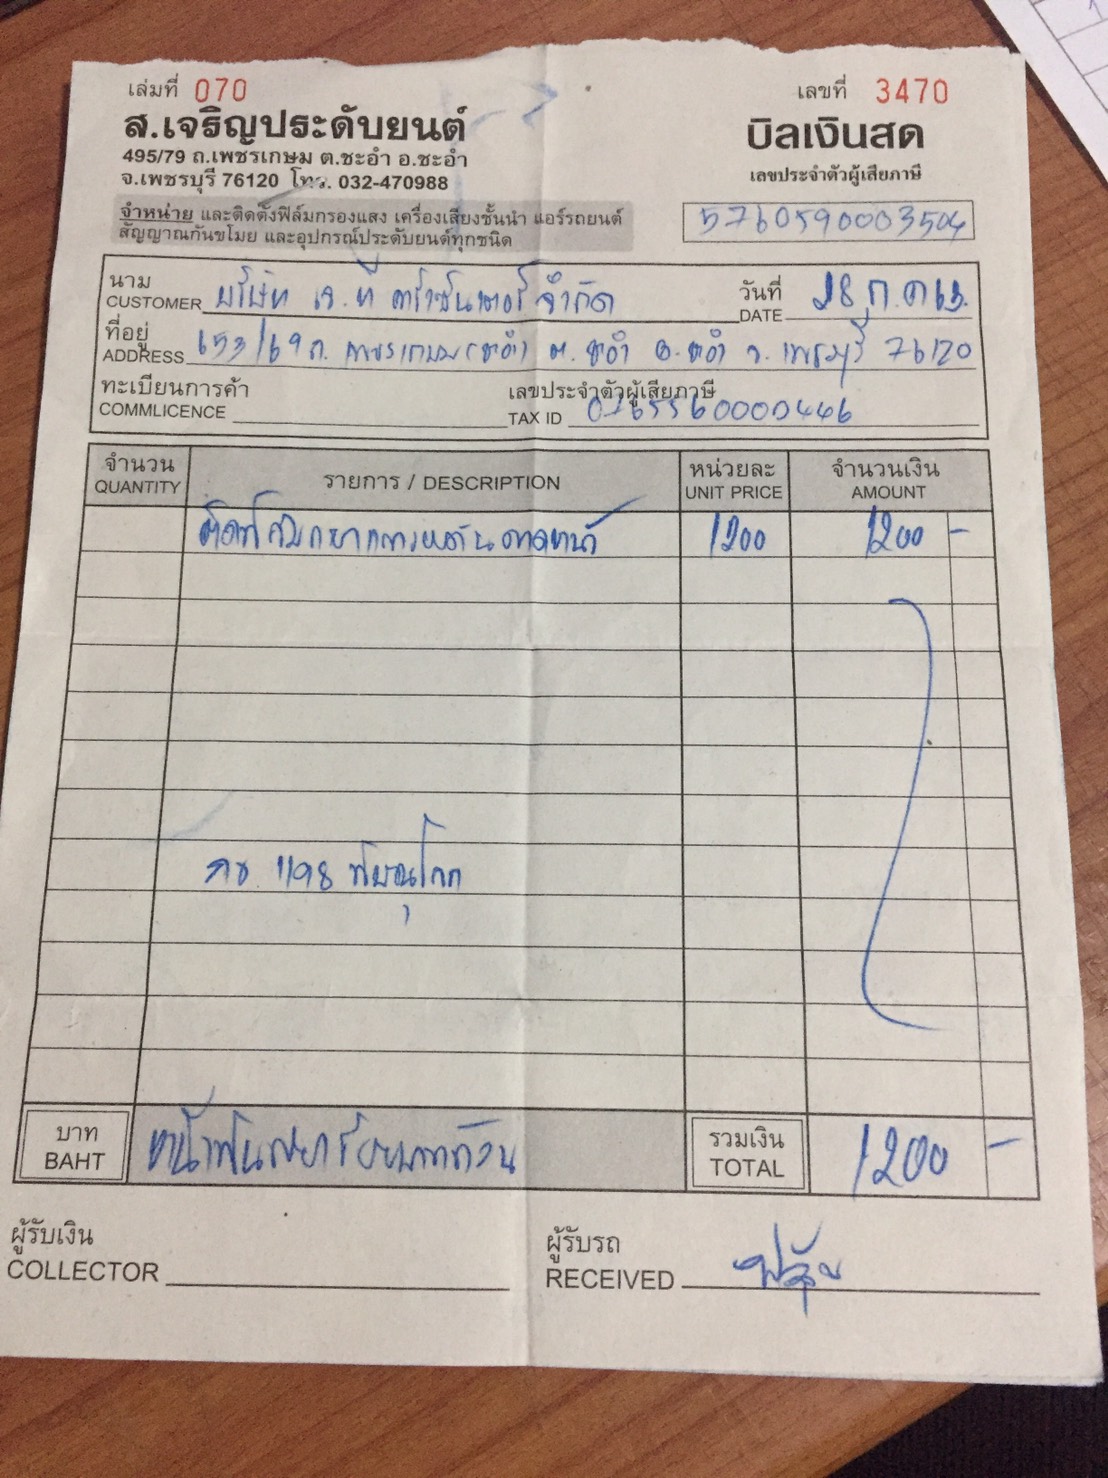 เล่มที่ 070
เลขที่ 3470
ส.เจริญประดับยนต์
บิลเงินสด
495/79 ถ.เพชรเกษม ต.ชะอำ อ.ชะอำ
จ.เพชรบุรี 76120 โทร. 032-470988
เลขประจำตัวผู้เสียภาษี
5760590003504
จำหน่าย และติดตั้งฟิล์มกรองแสง เครื่องเสียงชั้นนำ แอร์รถยนต์
สัญญาณกันขโมย และอุปกรณ์ประดับยนต์ทุกชนิด
นาม บริษัท เจ.ที คาร์เซ็นเตอร์ จำกัด วันที่ 28 ก.ค 63.
CUSTOMER DATE
ที่อยู่ 653/69 ถ. เพชรเกษม ต. ชะอำ อ.ชะอำ จ. เพชรบุรี 76120
ADDRESS
ทะเบียนการค้า เลขประจำตัวผู้เสียภาษี
COMMLICENCE TAX ID 0765560000446
จำนวน รายการ / DESCRIPTION หน่วยละ จำนวนเงิน
QUANTITY UNIT PRICE AMOUNT
1200 1200 -
1198 พิษณุโลก
บาท รวมเงิน
BAHT หนึ่งพันสองร้อยบาทถ้วน TOTAL 1200 -
ผู้รับเงิน ผู้รับรถ
COLLECTOR RECEIVED